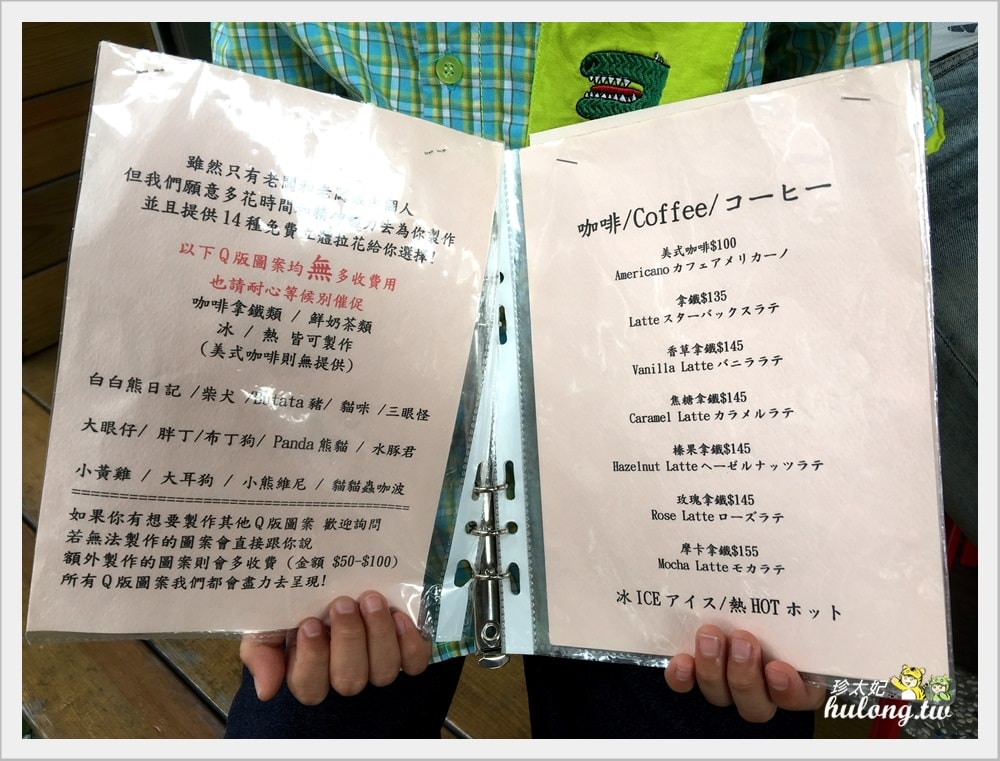 雖然只有老闆 個人
但我們願意多花時間 力去為你製作
並且提供14種免費立體拉花給你選擇!
以下Q版圖案均無多收費用
也請耐心等候別催促
咖啡拿鐵類 / 鮮奶茶類
冰 / 熱 皆可製作
(美式咖啡則無提供)
白白熊日記 /柴犬 /Butata豬/ 貓咪 /三眼怪
大眼仔/ 胖丁/布丁狗/ Panda熊貓 / 水豚君
小黃雞 / 大耳狗 / 小熊維尼 / 貓貓蟲咖波
==================================
如果你有想要製作其他Q版圖案 歡迎詢問
若無法製作的圖案會直接跟你說
額外製作的圖案則會多收費 (金額 $50-$100)
所有Q版圖案我們都會盡力去呈現!
咖啡/Coffee/コーヒー
美式咖啡$100
Americanoカフェアメリカーノ
拿鐵$135
Latteスターバックスラテ
香草拿鐵$145
Vanilla Latteバニララテ
焦糖拿鐵$145
Caramel Latteカラメルラテ
榛果拿鐵$145
Hazelnut Latteヘーゼルナッツラテ
玫瑰拿鐵$145
Rose Latteローズラテ
摩卡拿鐵$155
Mocha Latteモカラテ
冰ICEアイス/熱HOTホット
珍太妃
hulong.tw